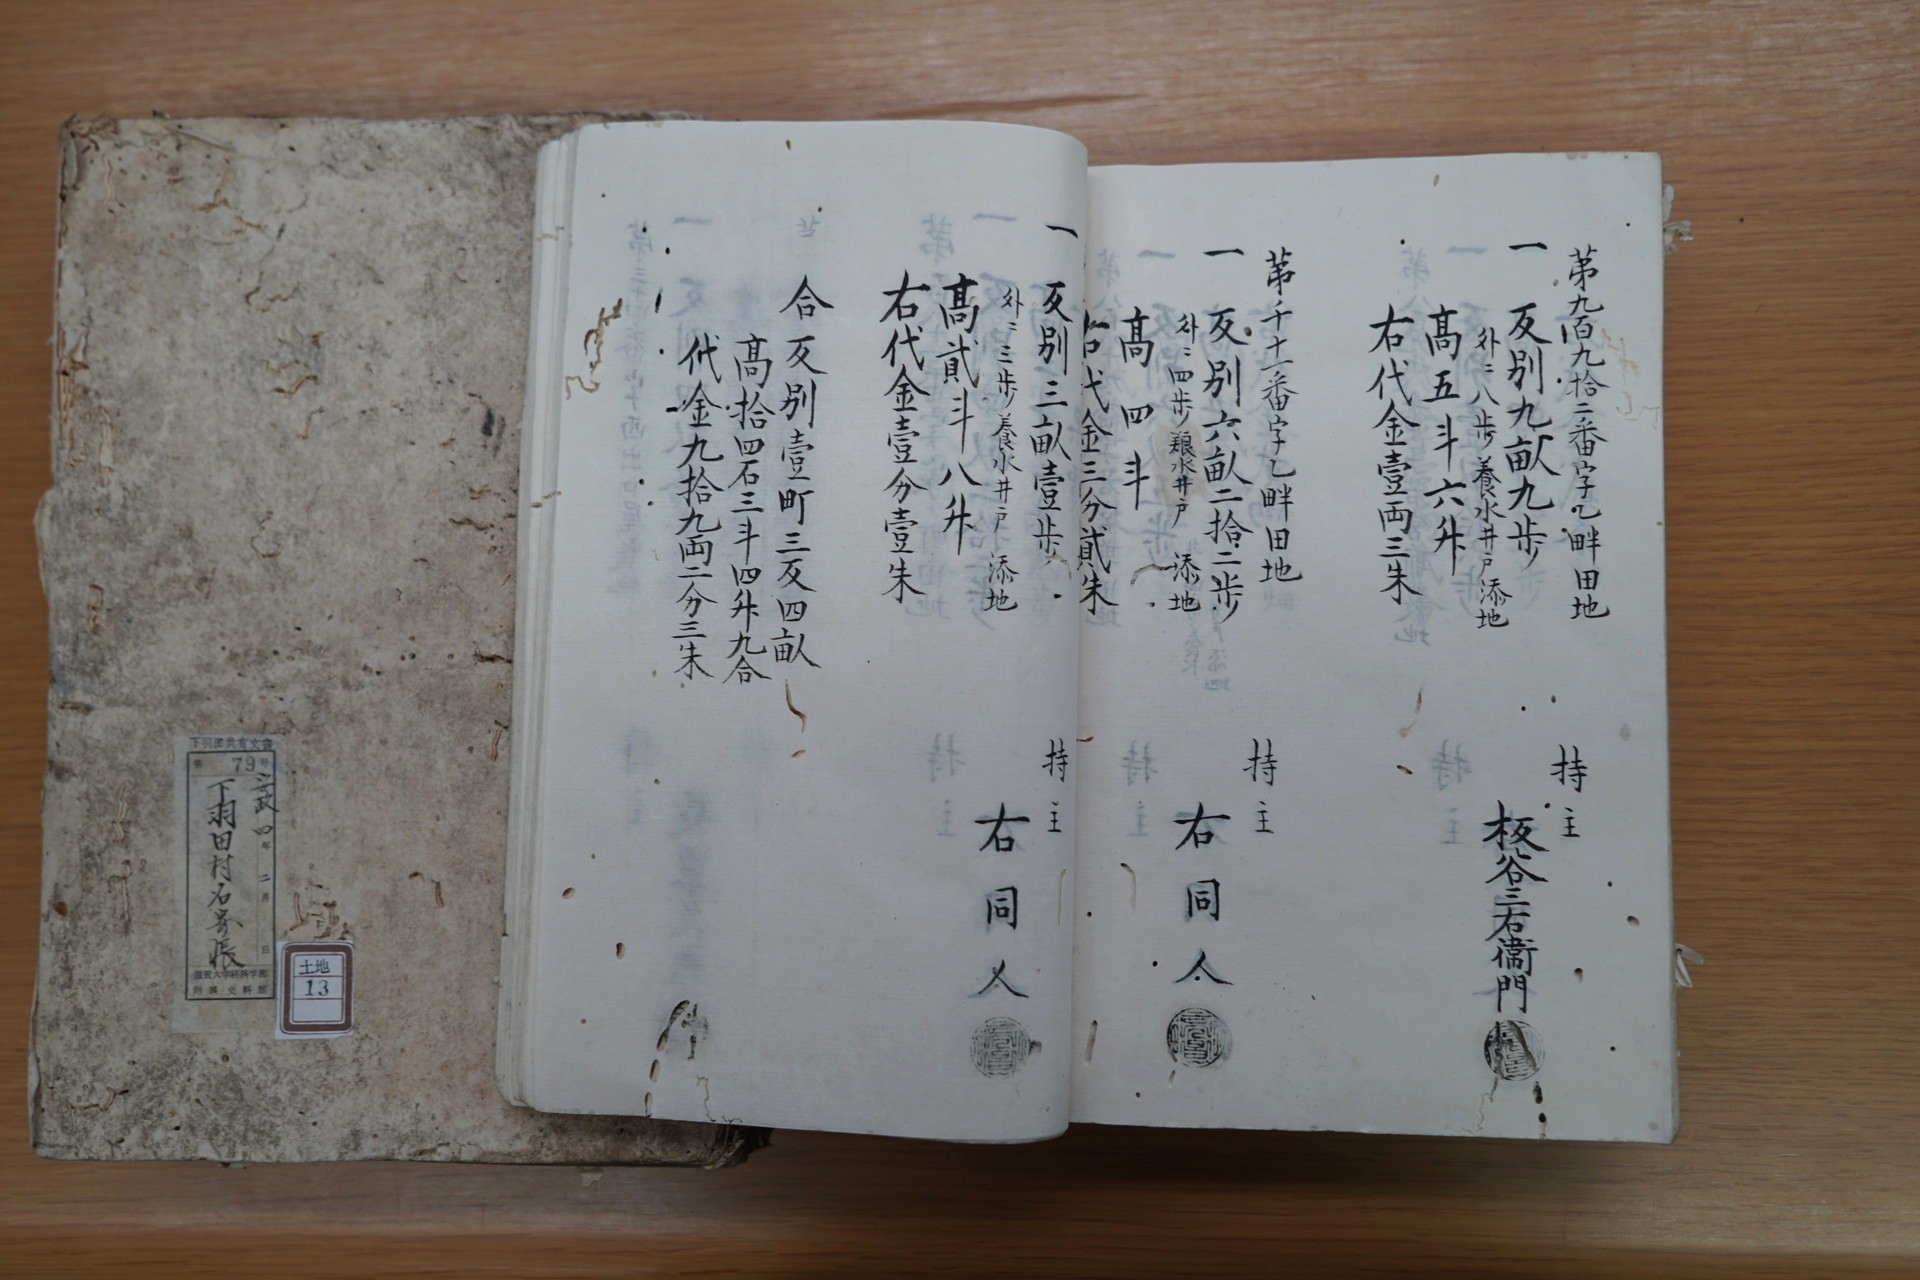 第九百九拾二番字乙畔田地
一 反別九畝九歩
外ニ八歩養水井戸添地
高五斗六升
右代金壹両三朱
持主
板谷三右衛門
第千十一番字乙畔田地
一 反別六畝二拾二歩
外ニ四歩養水井戸添地
高四斗
右代金三分貳朱
持主
右同人
一 反別三畝壹歩
外ニ三歩養水井戸添地
高貳斗八升
右代金壹分壹朱
持主
右同人
合反別壹町三反四畝
高拾四石三斗四升九合
代金九拾九両二分三朱
下羽田共有文書
第79号
安政四年二月 日
下羽田村名寄帳
滋賀大学経済学部
附属史料館
土地
13